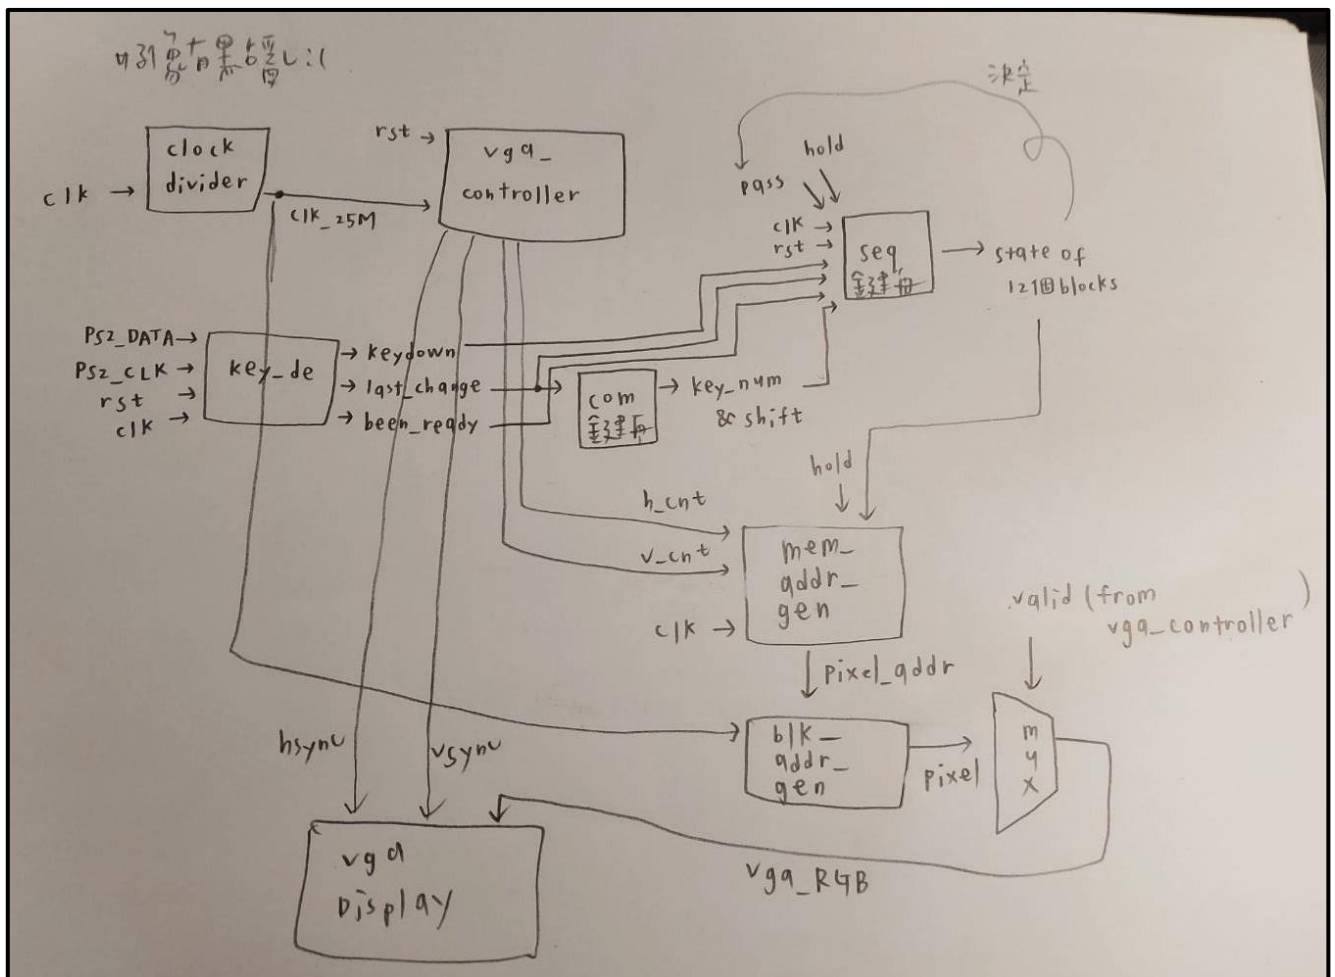 :(
決定
clock
divider
clk
clk_25M
rst
vga_
controller
pass
hold
clk
rst
seq
state of
12個blocks
PS2_DATA
PS2_CLK
rst
clk
key_de
keydown
last_change
been_ready
com
key_num
& shift
hold
h_cnt
v_cnt
clk
mem_
addr_
gen
pixel_addr
valid (from
vga_controller)
hsync
vsync
blk_
addr_
gen
pixel
mux
vga_RGB
vga
Display